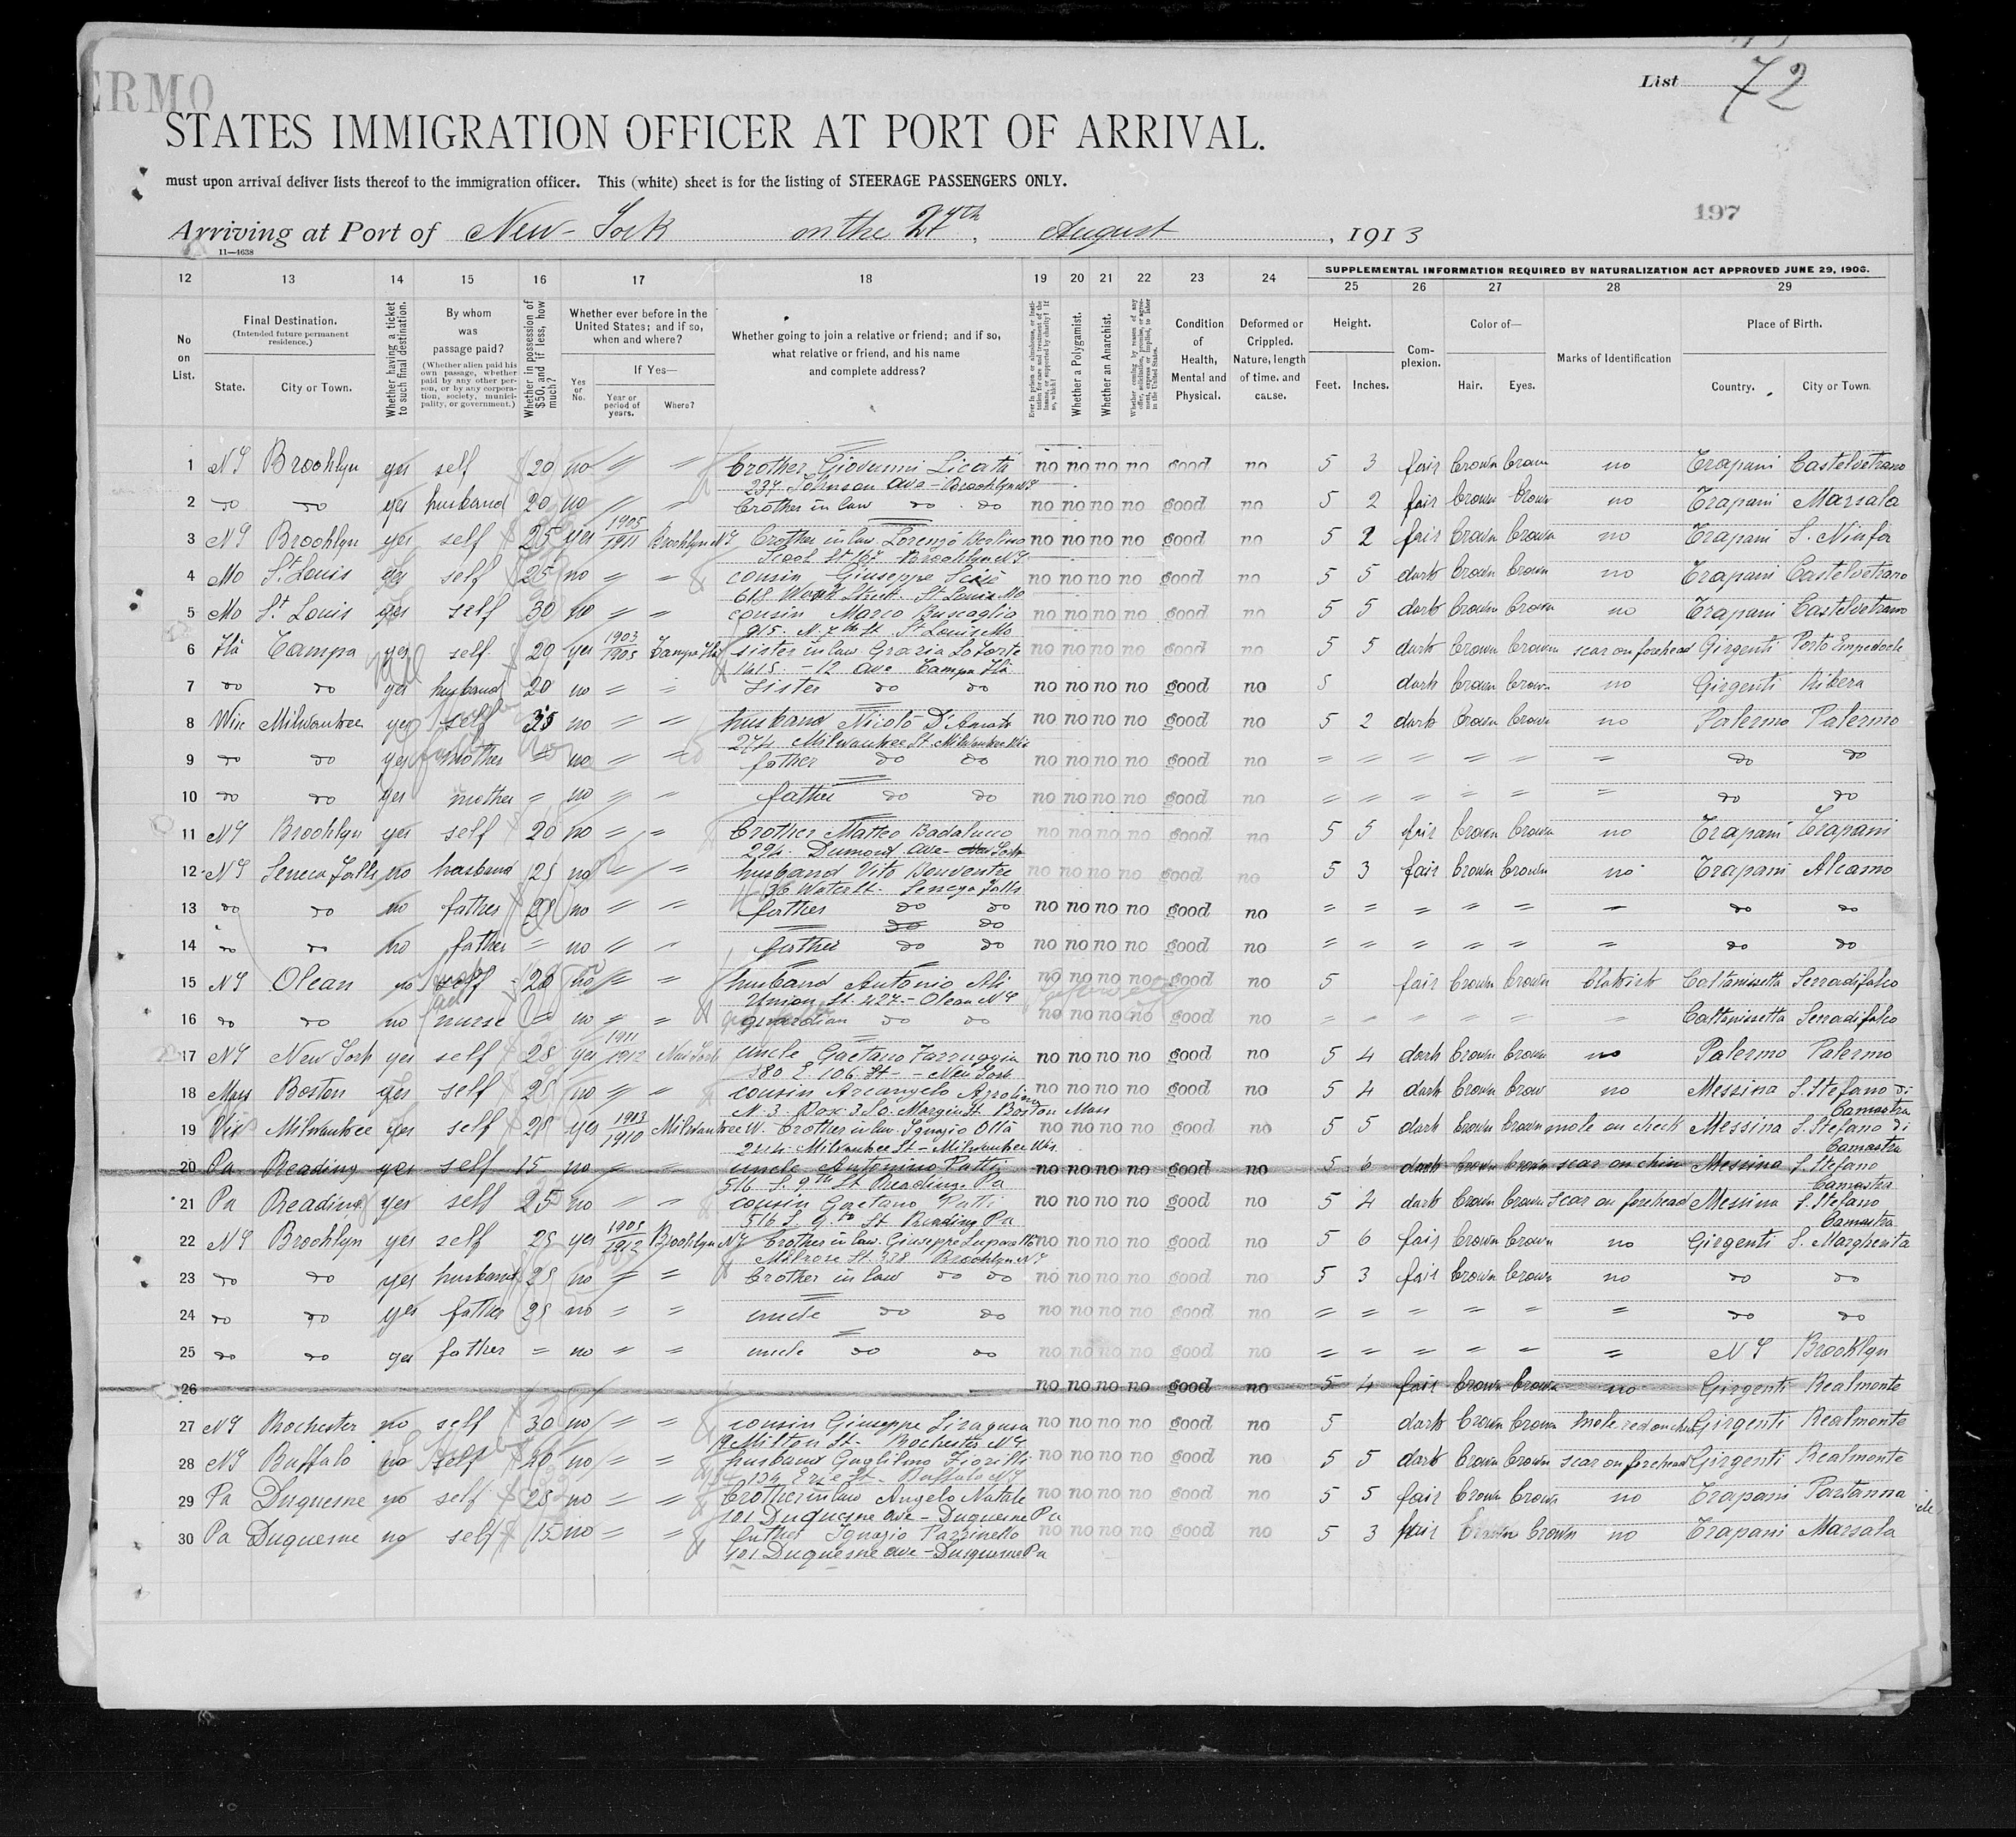 ERMO
List 72
STATES IMMIGRATION OFFICER AT PORT OF ARRIVAL.
must upon arrival deliver lists thereof to the immigration officer. This (white) sheet is for the listing of STEERAGE PASSENGERS ONLY.
197
Arriving at Port of New-York on the 27th August, 1913
11—4638
12 13 14 15 16 17 18 19 20 21 22 23 24 SUPPLEMENTAL INFORMATION REQUIRED BY NATURALIZATION ACT APPROVED JUNE 29, 1906.
25 26 27 28 29
No on List.
Final Destination. (Intended future permanent residence.)
State. City or Town.
Whether having a ticket to such final destination.
By whom was passage paid? (Whether alien paid his own passage, whether paid by any other person, or by any corporation, society, municipality, or government.)
Whether in possession of $50, and if less, how much?
Whether ever before in the United States; and if so, when and where?
Yes or No.
If Yes—
Year or period of years. Where?
Whether going to join a relative or friend; and if so, what relative or friend, and his name and complete address?
Whether a Polygamist.
Whether an Anarchist.
Condition of Health, Mental and Physical.
Deformed or Crippled. Nature, length of time, and cause.
Height.
Feet. Inches.
Complexion.
Color of—
Hair. Eyes.
Marks of Identification
Place of Birth.
Country. City or Town.
1 NY Brooklyn yes self 20 no " " brother Giovanni Licata no no no no good no 5 3 fair brown brown no Trapani Castelvetrano
237 Johnson Ave - Brooklyn NY
2 do do yes husband 20 no " " brother in law do do no no no no good no 5 2 fair brown brown no Trapani Marsala
3 NY Brooklyn yes self 25 yes 1905 1911 Brooklyn NY brother in law Lorenzo Berlino no no no no good no 5 2 fair brown brown no Trapani S. Ninfa
St 167 Brooklyn NY
4 Mo St Louis yes self 25 no " " cousin Giuseppe no no no no good no 5 5 dark brown brown no Trapani Castelvetrano
618 Street St Louis Mo
5 Mo St Louis yes self 30 no " " cousin Marco Buscaglia no no no no good no 5 5 dark brown brown no Trapani Castelvetrano
915 N. 7th St St Louis Mo
6 Fla Tampa yes self 20 yes 1903 1905 Tampa Fla sister in law Grazia Lo Forte no no no no good no 5 5 dark brown brown scar on forehead Girgenti Porto Empedocle
1415 - 12 Ave Tampa Fla
7 do do yes husband 20 no " " sister do do no no no no good no 5 dark brown brown no Girgenti Ribera
8 Wis Milwaukee yes self 35 no " " husband Nicolò D'Amato no no no no good no 5 2 dark brown brown no Palermo Palermo
274 Milwaukee St Milwaukee Wis
9 do do yes mother " no " " father do do no no no no good no " " " " " " do do
10 do do yes mother " no " " father do do no no no no good no " " " " " " do do
11 NY Brooklyn yes self 20 no " " brother Matteo Badalucco no no no no good no 5 5 fair brown brown no Trapani Trapani
294 Dumond Ave - New York
12 NY Seneca Falls no husband 25 no " " husband Vito Bonventre no no no no good no 5 3 fair brown brown no Trapani Alcamo
136 Water St. Seneca Falls
13 do do no father 25 no " " father do do no no no no good no " " " " " " do do
do do
14 do do no father " no " " father do do no no no no good no " " " " " " do do
15 NY Olean no self 20 no " " husband Antonio no no no no good no 5 fair brown brown Caltanissetta Serradifalco
Union St. 427 - Olean NY
16 do do no nurse " no " " guardian do do no no no no good no " " " " " " Caltanissetta Serradifalco
17 NY New York yes self 25 yes 1911 1912 New York uncle Gaetano Farruggia no no no no good no 5 4 dark brown brown no Palermo Palermo
380 E. 106 St - New York
18 Mass Boston yes self 25 no " " cousin Arcangelo no no no no good no 5 4 dark brown brow no Messina S. Stefano di Camastra
N. 3 So. Margin St Boston Mass
19 Wis Milwaukee yes self 25 yes 1903 1910 Milwaukee W. brother in law Ignazio no no no no good no 5 5 dark brown brown mole on cheek Messina S. Stefano di Camastra
244 Milwaukee St - Milwaukee Wis
20 Pa Reading yes self 15 no " " uncle Antonino Patti no no no no good no 5 6 dark brown brown scar on chin Messina S. Stefano Camastra
516 S. 9th St Reading Pa
21 Pa Reading yes self 25 no " " cousin Gaetano Patti no no no no good no 5 4 dark brown brown scar on forehead Messina S. Stefano Camastra
516 S. 9th St Reading Pa
22 NY Brooklyn yes self 25 yes 1905 1912 Brooklyn NY brother in law Giuseppe no no no no good no 5 6 fair brown brown no Girgenti S. Margherita
Melrose St. 328 Brooklyn NY
23 do do yes husband 25 no " " brother in law do do no no no no good no 5 3 fair brown brown no do do
24 do do yes father 25 no " " uncle do do no no no no good no " " " " " " do do
25 do do yes father " no " " uncle do do no no no no good no " " " " " " NY Brooklyn
26 no no no no good no 5 4 fair brown brown no Girgenti Realmonte
27 NY Rochester no self 30 no " " cousin Giuseppe Siragusa no no no no good no 5 dark brown brown Girgenti Realmonte
19 Milton St - Rochester NY
28 NY Buffalo no self 20 no " " husband Guglilmo no no no no good no 5 5 dark brown brown scar on forehead Girgenti Realmonte
134 Erie St - Buffalo NY
29 Pa Duquesne no self 25 no " " brother in law Angelo Natale no no no no good no 5 5 fair brown brown no Trapani Partanna
101 Duquesne Ave - Duquesne Pa
30 Pa Duquesne no self 15 no " " father Ignazio Parrinello no no no no good no 5 3 fair brown brown no Trapani Marsala
101 Duquesne Ave - Duquesne Pa